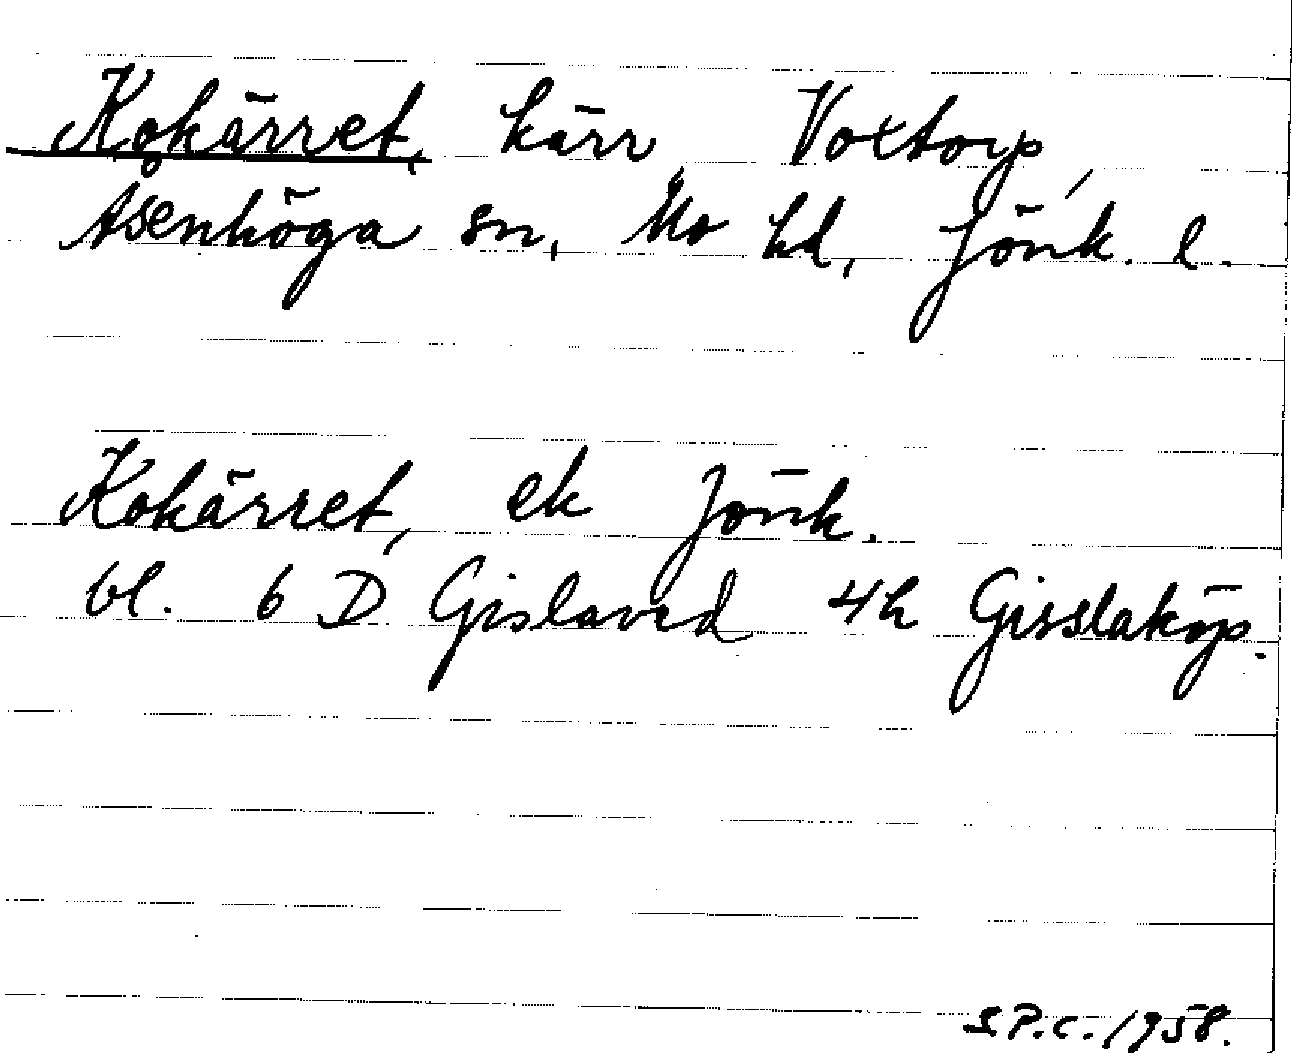 Kokärret, kärr, Voxtorp,
Åsenhöga sn, Mo hd, Jönk. l.
Kokärret, ek Jönk.
bl. 6 D Gislaved 4h Gisslaköp.
S.P.C. 1958.